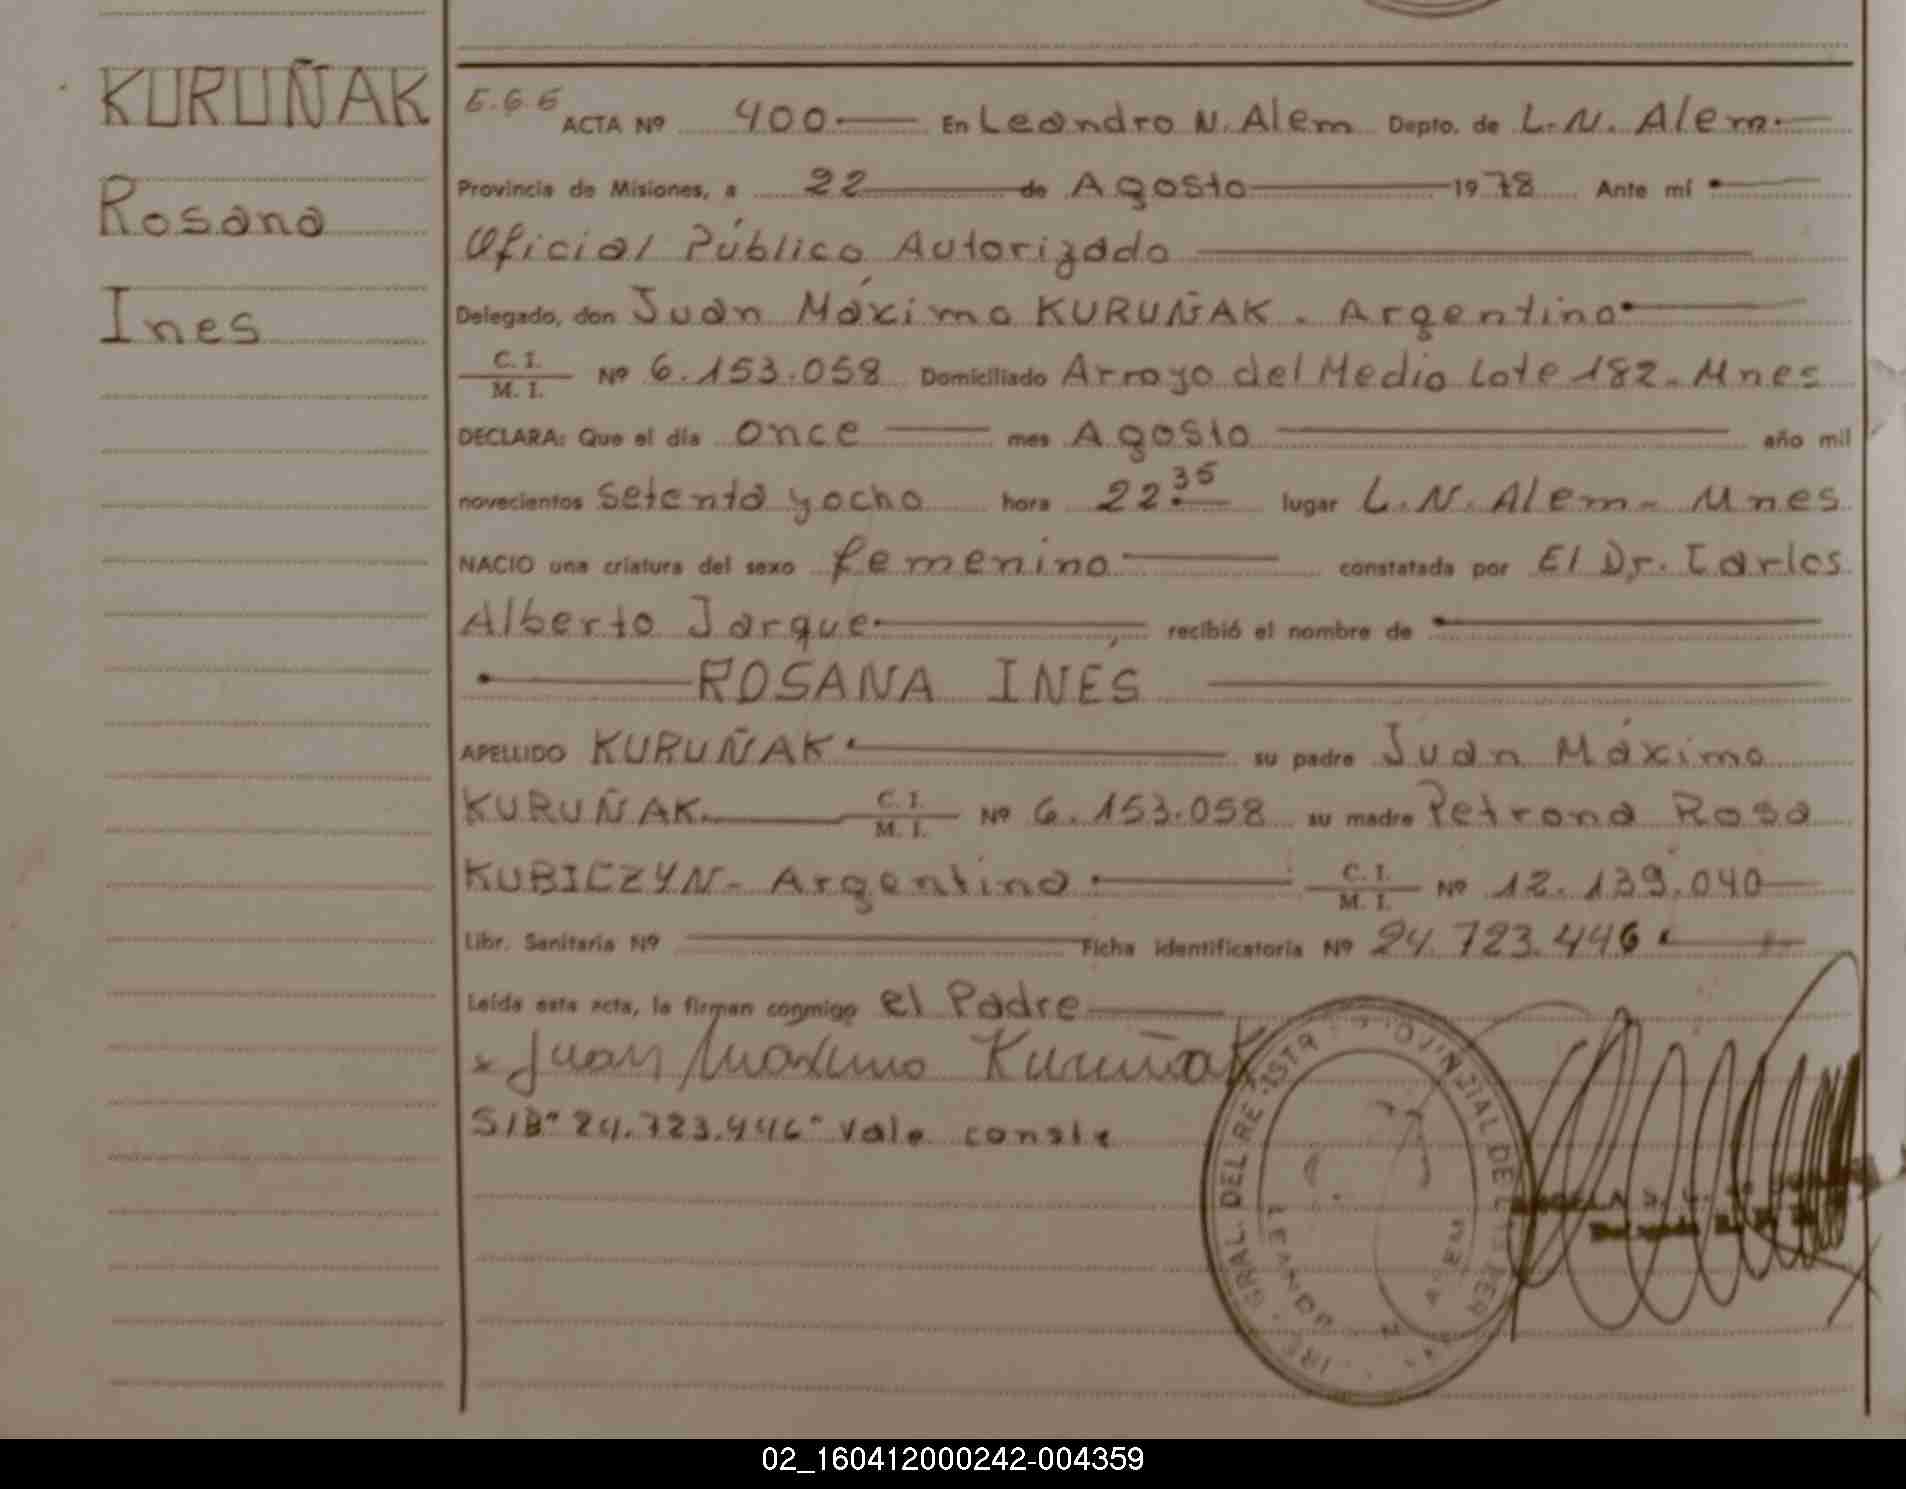 KURUÑAK
Rosana
Ines
ACTA Nº 400 En Leandro N. Alem Depto. de L. N. Alem.
Provincia de Misiones, a 22 de Agosto 1978 Ante mí
Oficial Público Autorizado
Delegado, don Juan Máximo KURUÑAK. Argentino
C. I.
M. I. Nº 6.153.058 Domiciliado Arroyo del Medio Lote 182. Mnes
DECLARA: Que el día once mes Agosto año mil
novecientos setenta y ocho hora 22.35 lugar L. N. Alem - Mnes.
NACIO una criatura del sexo femenino constatada por El Dr. Carlos
Alberto Jarque recibió el nombre de
ROSANA INÉS
APELLIDO KURUÑAK su padre Juan Máximo
KURUÑAK. C. I.
M. I. Nº 6.153.058 su madre Petrona Rosa
KUBICZYN - Argentina C. I.
M. I. Nº 12.139.040
Libr. Sanitaria Nº Ficha identificatoria Nº 24.723.446
Leída esta acta, la firman conmigo el Padre
x Juan Maximo Kuruñak
S/B" 24.723.446" Vale conste
LEANDRO N. ALEM
02_160412000242-004359